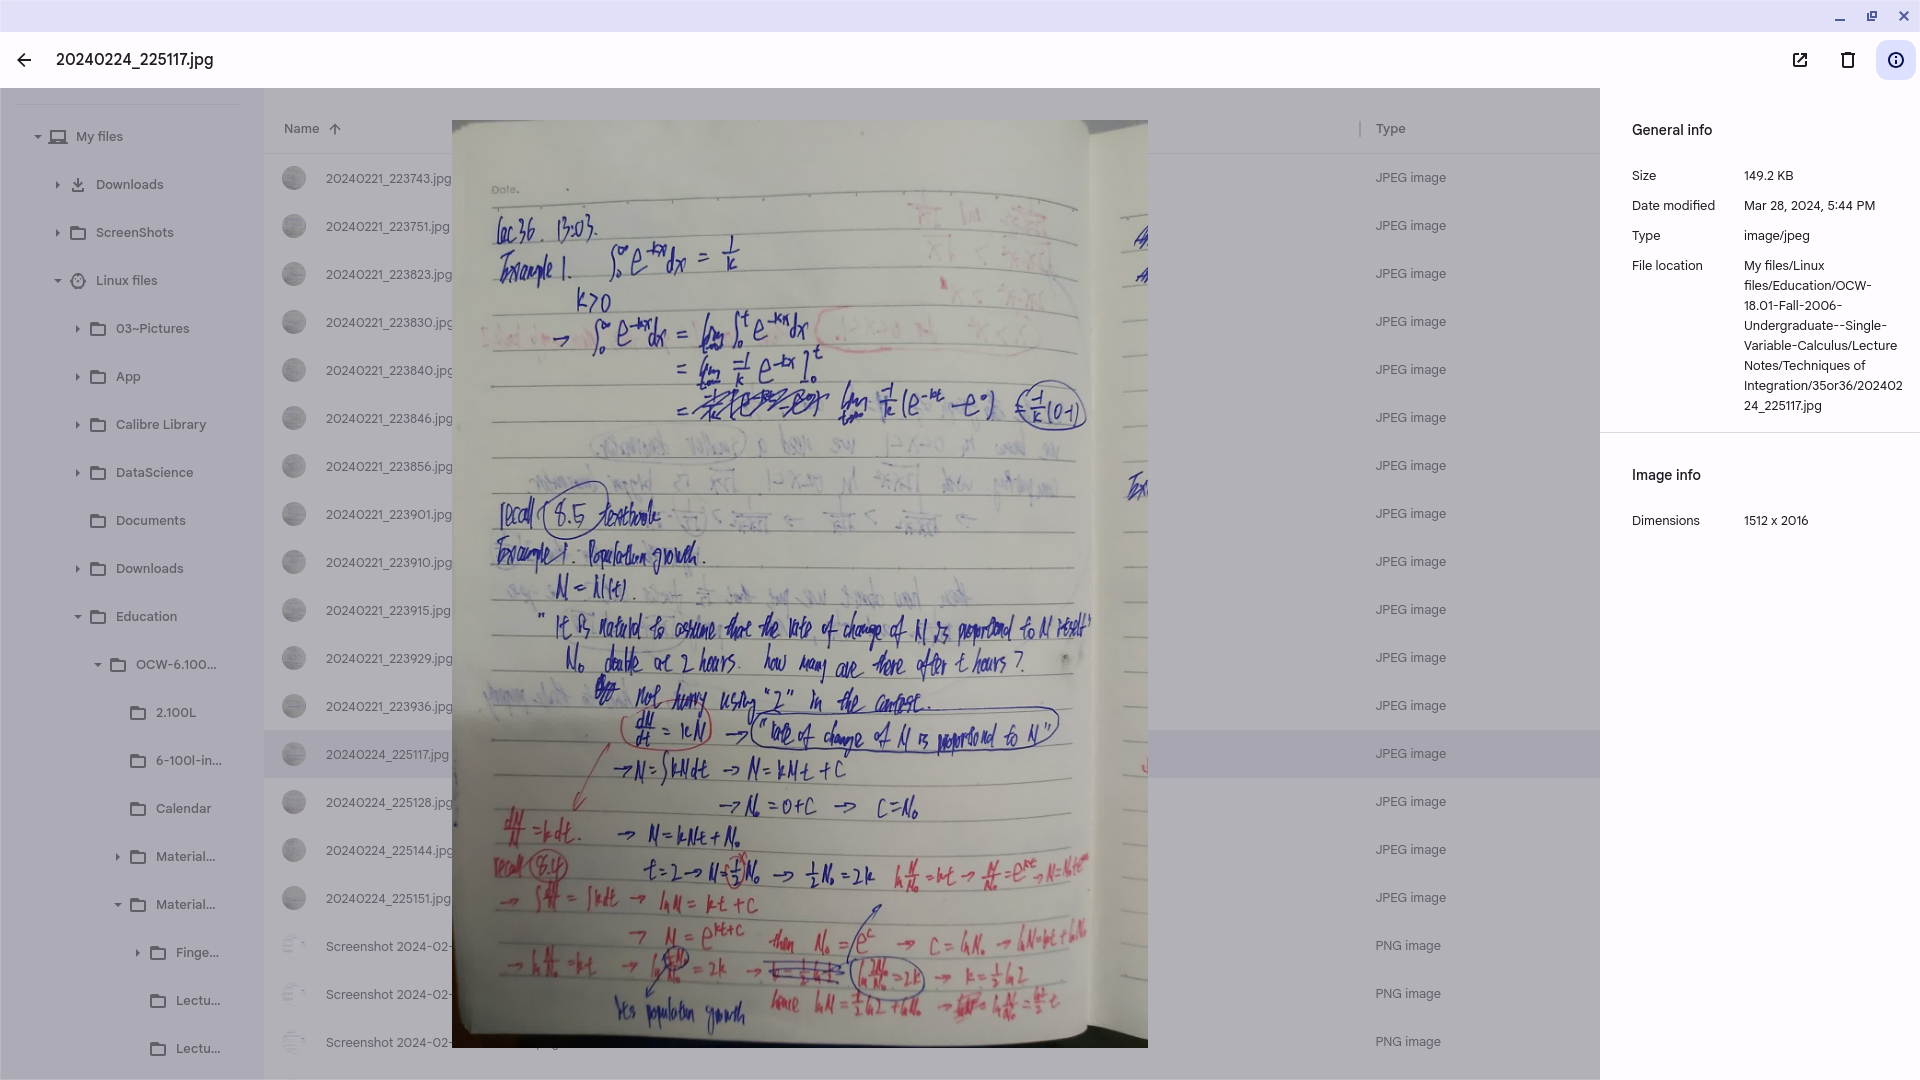 20240224_225117.jpg
My files
Downloads
ScreenShots
Linux files
03~Pictures
App
Calibre Library
DataScience
Documents
Downloads
Education
OCW-6.100...
2.100L
6-100l-in...
Calendar
Material...
Material...
Finge...
Lectu...
Lectu...
Name
Type
20240221_223743.jpg JPEG image
20240221_223751.jpg JPEG image
20240221_223823.jpg JPEG image
20240221_223830.jpg JPEG image
20240221_223840.jpg JPEG image
20240221_223846.jpg JPEG image
20240221_223856.jpg JPEG image
20240221_223901.jpg JPEG image
20240221_223910.jpg JPEG image
20240221_223915.jpg JPEG image
20240221_223929.jpg JPEG image
20240221_223936.jpg JPEG image
20240224_225117.jpg JPEG image
20240224_225128.jpg JPEG image
20240224_225144.jpg JPEG image
20240224_225151.jpg JPEG image
Screenshot 2024-02- PNG image
Screenshot 2024-02- PNG image
Screenshot 2024-02- PNG image
Date.
Lec36. 13:03.
Example 1. ∫₀^∞ e^{-kx} dx = 1/k
k>0
→ ∫₀^∞ e^{-kx} dx = lim ∫₀^t e^{-kx} dx
= lim -1/k e^{-kx} ]₀^t
= lim -1/k (e^{-kt} - e⁰) = -1/k (0-1)
recall 8.5 textbook
Example 1. Population growth.
N = N(t).
"It is natural to assume that the rate of change of N is proportional to N itself"
N₀ double at 2 hours. how many are there after t hours?
not hurry using "2" in the context.
dN/dt = kN → "rate of change of N is proportional to N"
→ N = ∫kNdt → N = kNt + C
→ N₀ = 0+C → C = N₀
dN/N = kdt. → N = kNt + N₀
recall 8.4 t=2 → N = 1/2 N₀ → 1/2 N₀ = 2k ln N/N₀ = kt → N/N₀ = e^{kt} → N = N₀e^{kt}
→ ∫ dN/N = ∫kdt → lnN = kt + C
→ N = e^{kt+C} then N₀ = e^C → C = lnN₀ → lnN = kt + lnN₀
→ ln N/N₀ = kt → = 2k → ln 2N₀/N₀ = 2k → k = 1/2 ln2
It's population growth hence lnN = 1/2 ln2 + lnN₀ → ln N/N₀ = ln2/2 t
General info
Size 149.2 KB
Date modified Mar 28, 2024, 5:44 PM
Type image/jpeg
File location My files/Linux
files/Education/OCW-
18.01-Fall-2006-
Undergraduate--Single-
Variable-Calculus/Lecture
Notes/Techniques of
Integration/35or36/202402
24_225117.jpg
Image info
Dimensions 1512 x 2016